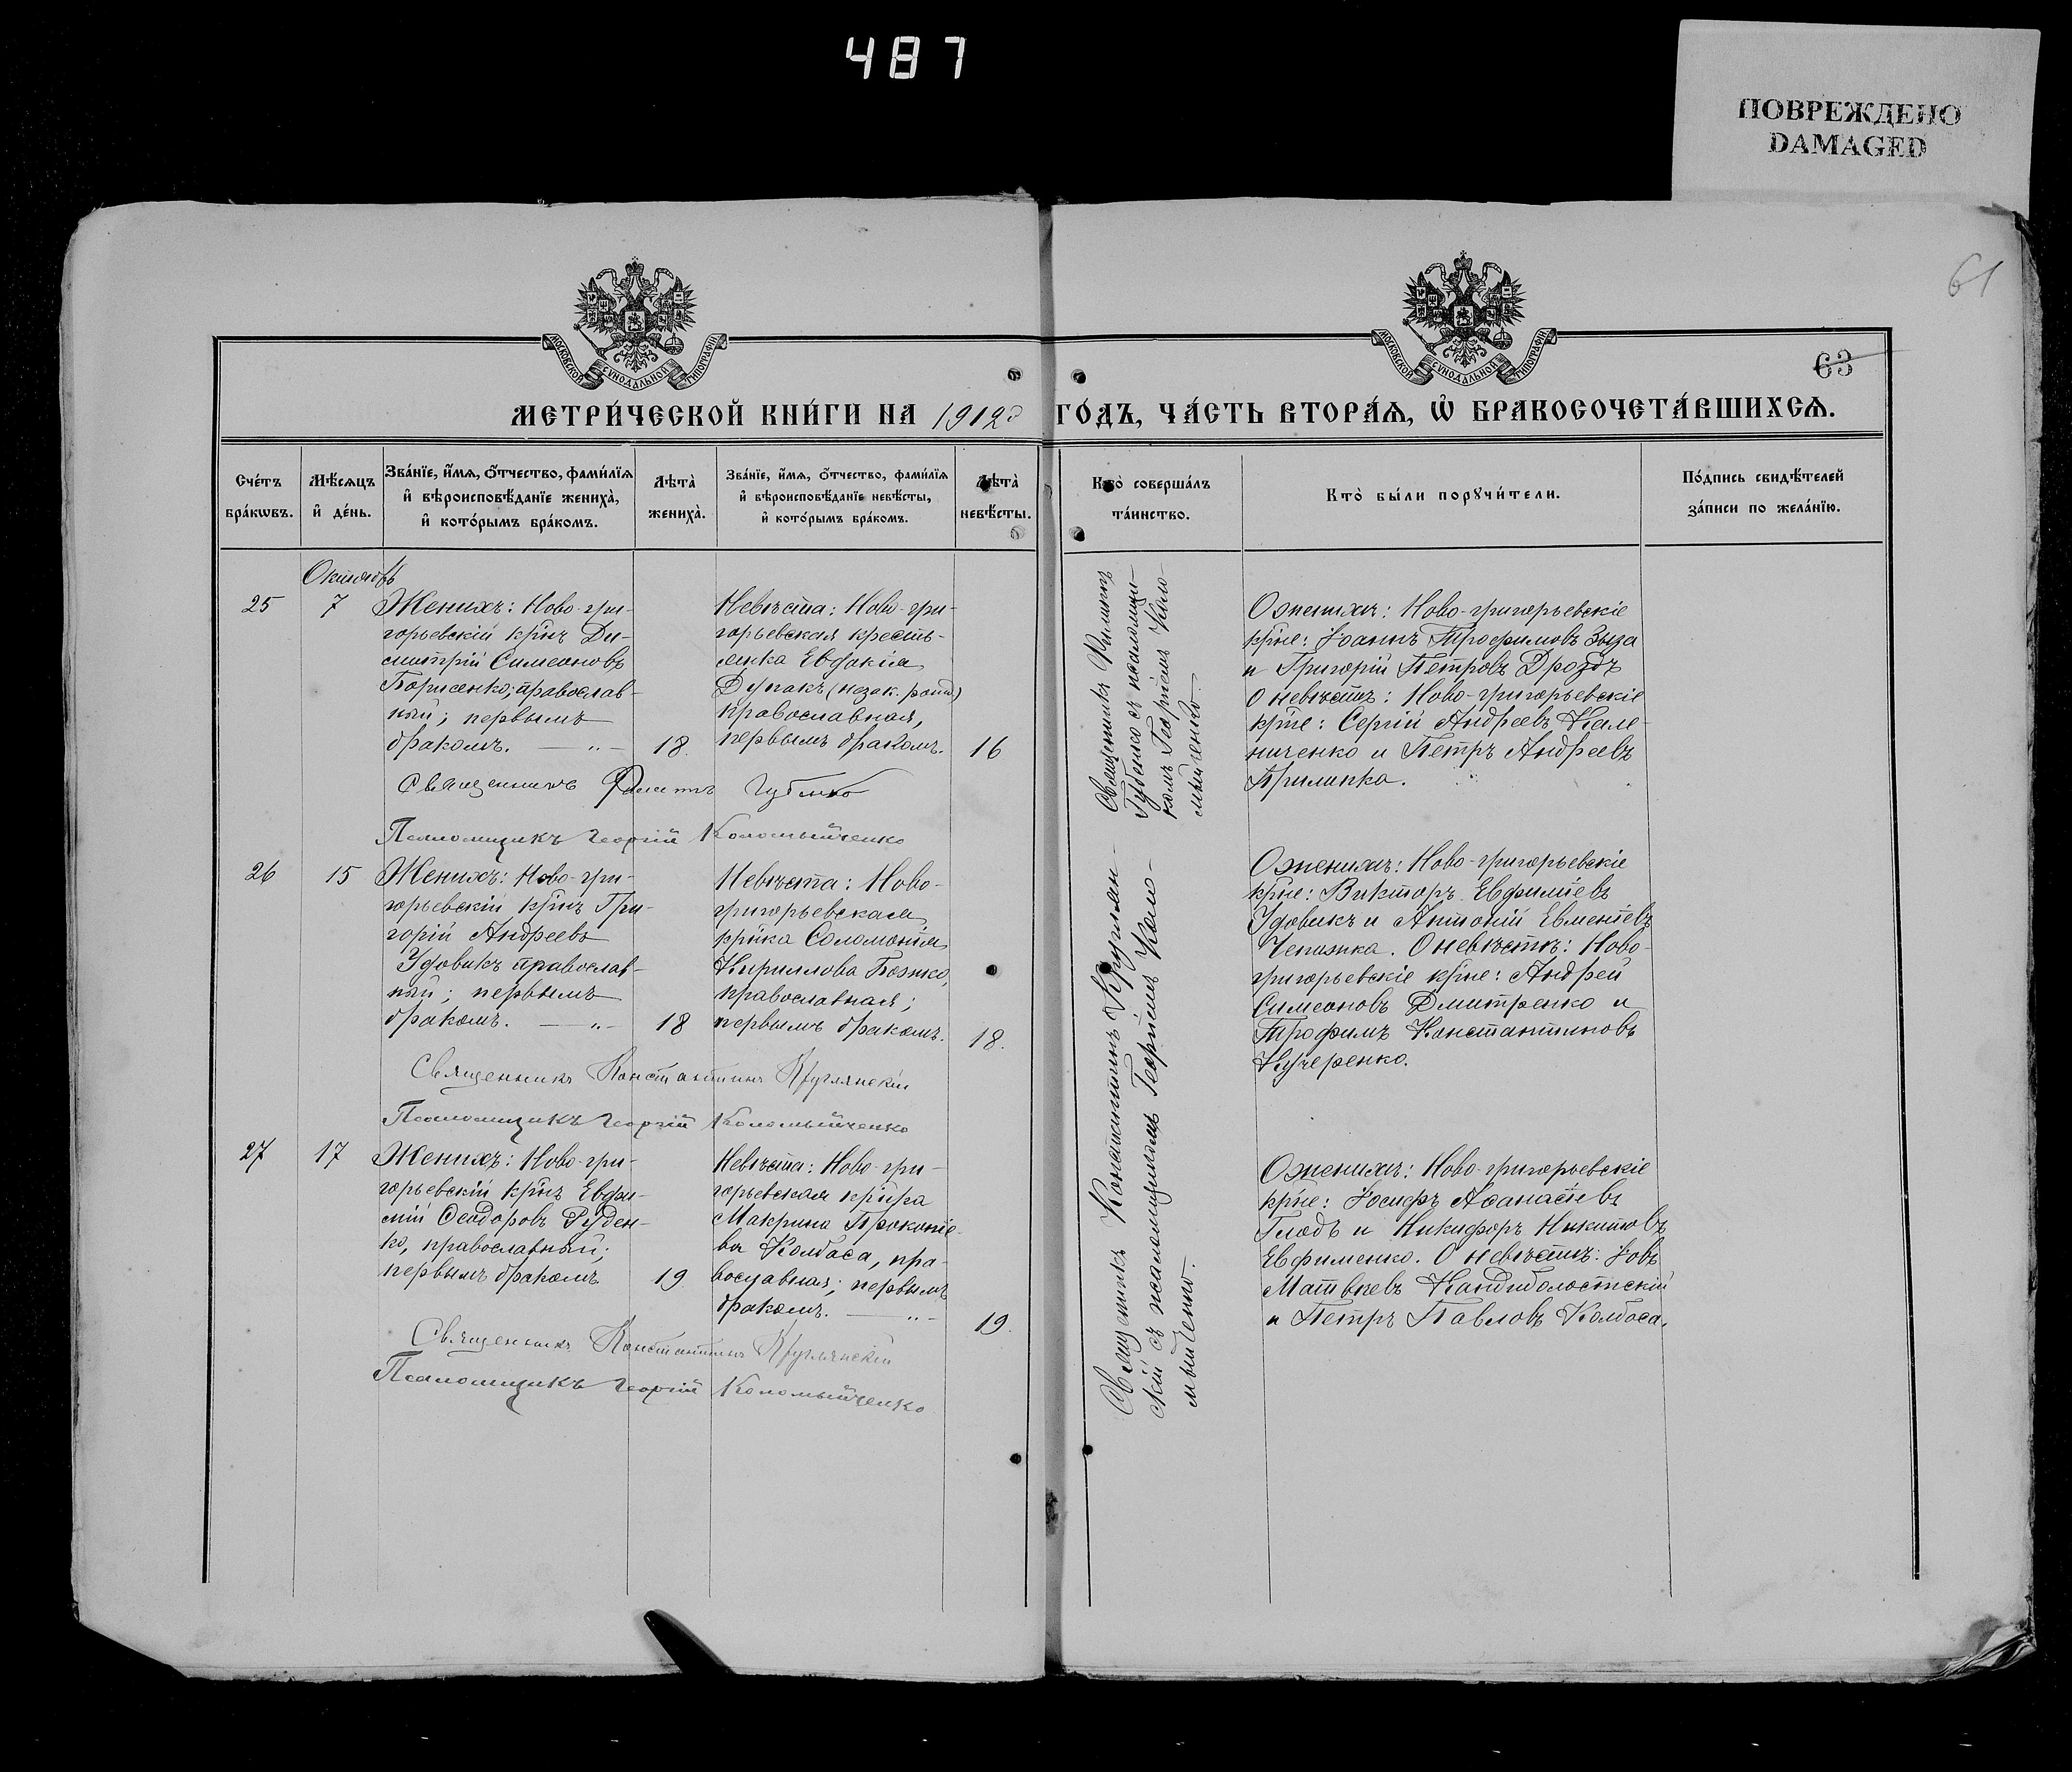 487
ПОВРЕЖДЕНО
DAMAGED
61
МОСКОВСКОЙ СУНОДАЛЬНОЙ ТИПОГРАФІИ
МОСКОВСКОЙ СУНОДАЛЬНОЙ ТИПОГРАФІИ
63
МЕТРИ́ЧЕСКОЙ КНИ́ГИ НА 1912 ГО́ДЪ, ЧА́СТЬ ВТОРА́Ѧ, Ѡ҆ БРАКОСОЧЕТА́ВШИХСѦ.
Сче́тъ
бра́кѡвъ.
Мѣ́сѧцъ
и҆ де́нь.
Зва́нїе, и҆́мѧ, ѻ҆́тчество, фами́лїѧ
и҆ вѣроисповѣ́данїе жениха̀,
и҆ кото́рымъ бра́комъ.
Лѣта̀
жениха̀.
Зва́нїе, и҆́мѧ, ѻ҆́тчество, фами́лїѧ
и҆ вѣроисповѣ́данїе невѣ́сты,
и҆ кото́рымъ бра́комъ.
Лѣта̀
невѣ́сты.
Кто̀ соверша́лъ
та́инство.
Кто̀ бы́ли порꙋчи́тели.
По́дпись свидѣ́телей
за́писи по жела́нїю.
Октябрь
25
7
Женихъ: Ново-гри-
горьевскій кр̃нъ Ди-
митрій Симеоновъ
Борисенко; православ-
ный; первымъ
бракомъ. — „ –
18.
Невѣста: Ново-гри-
горьевская кресть-
янка Евдокія
Дупакъ (незак. рожд)
православная,
первымъ бракомъ.
16
Священникъ Филиппъ
Губенко съ псаломщи-
комъ Георгіемъ Коло-
мыйченко.
О женихѣ: Ново-григорьевскіе
кр̃не: Іоаннъ Трофимовъ Зыза
и Григорій Петровъ Дроздъ
О невѣстѣ: Ново-григорьевскіе
кр̃не: Сергій Андреевъ Кале-
ниченко и Петръ Андреевъ
Прилипко.
Священникъ Филиппъ Губенко
Псаломщикъ Георгій Коломыйченко
26
15
Женихъ: Ново-гри-
горьевскій кр̃нъ Гри-
горій Андреевъ
Удовикъ православ-
ный; первымъ
бракомъ. — „ –
18
Невѣста: Ново-
григорьевская
кр̃нка Соломонія
Кириллова Божко,
православная;
первымъ бракомъ.
18.
Священникъ Константинъ Круглян-
скій съ псаломщикомъ Георгіемъ Коло-
мыйченко.
О женихѣ: Ново-григорьевскіе
кр̃не: Викторъ Евфиміевъ
Удовикъ и Антоній Евменіевъ
Чепижка. О невѣстѣ: Ново-
григорьевскіе кр̃не: Андрей
Симеоновъ Дмитренко и
Трофимъ Константиновъ
Кучеренко.
Священникъ Константинъ Круглянскій
Псаломщикъ Георгій Коломыйченко
27
17
Женихъ: Ново-гри-
горьевскій кр̃нъ Евфи-
мій Ѳеодоровъ Руден-
ко, православный;
первымъ бракомъ
19.
Невѣста: Ново-гри-
горьевская
Макрина Прокопіе-
ва Колбаса, пра-
вославная; первымъ
бракомъ. — „ –
19.
О женихѣ: Ново-григорьевскіе
кр̃не: Іосифъ Аѳанасіевъ
Глодъ и Никифоръ Никитовъ
Евфименко. О невѣстѣ: Іовъ
Матвѣевъ
и Петръ Павловъ Колбаса.
Священникъ Константинъ Круглянскій
Псаломщикъ Георгій Коломыйченко